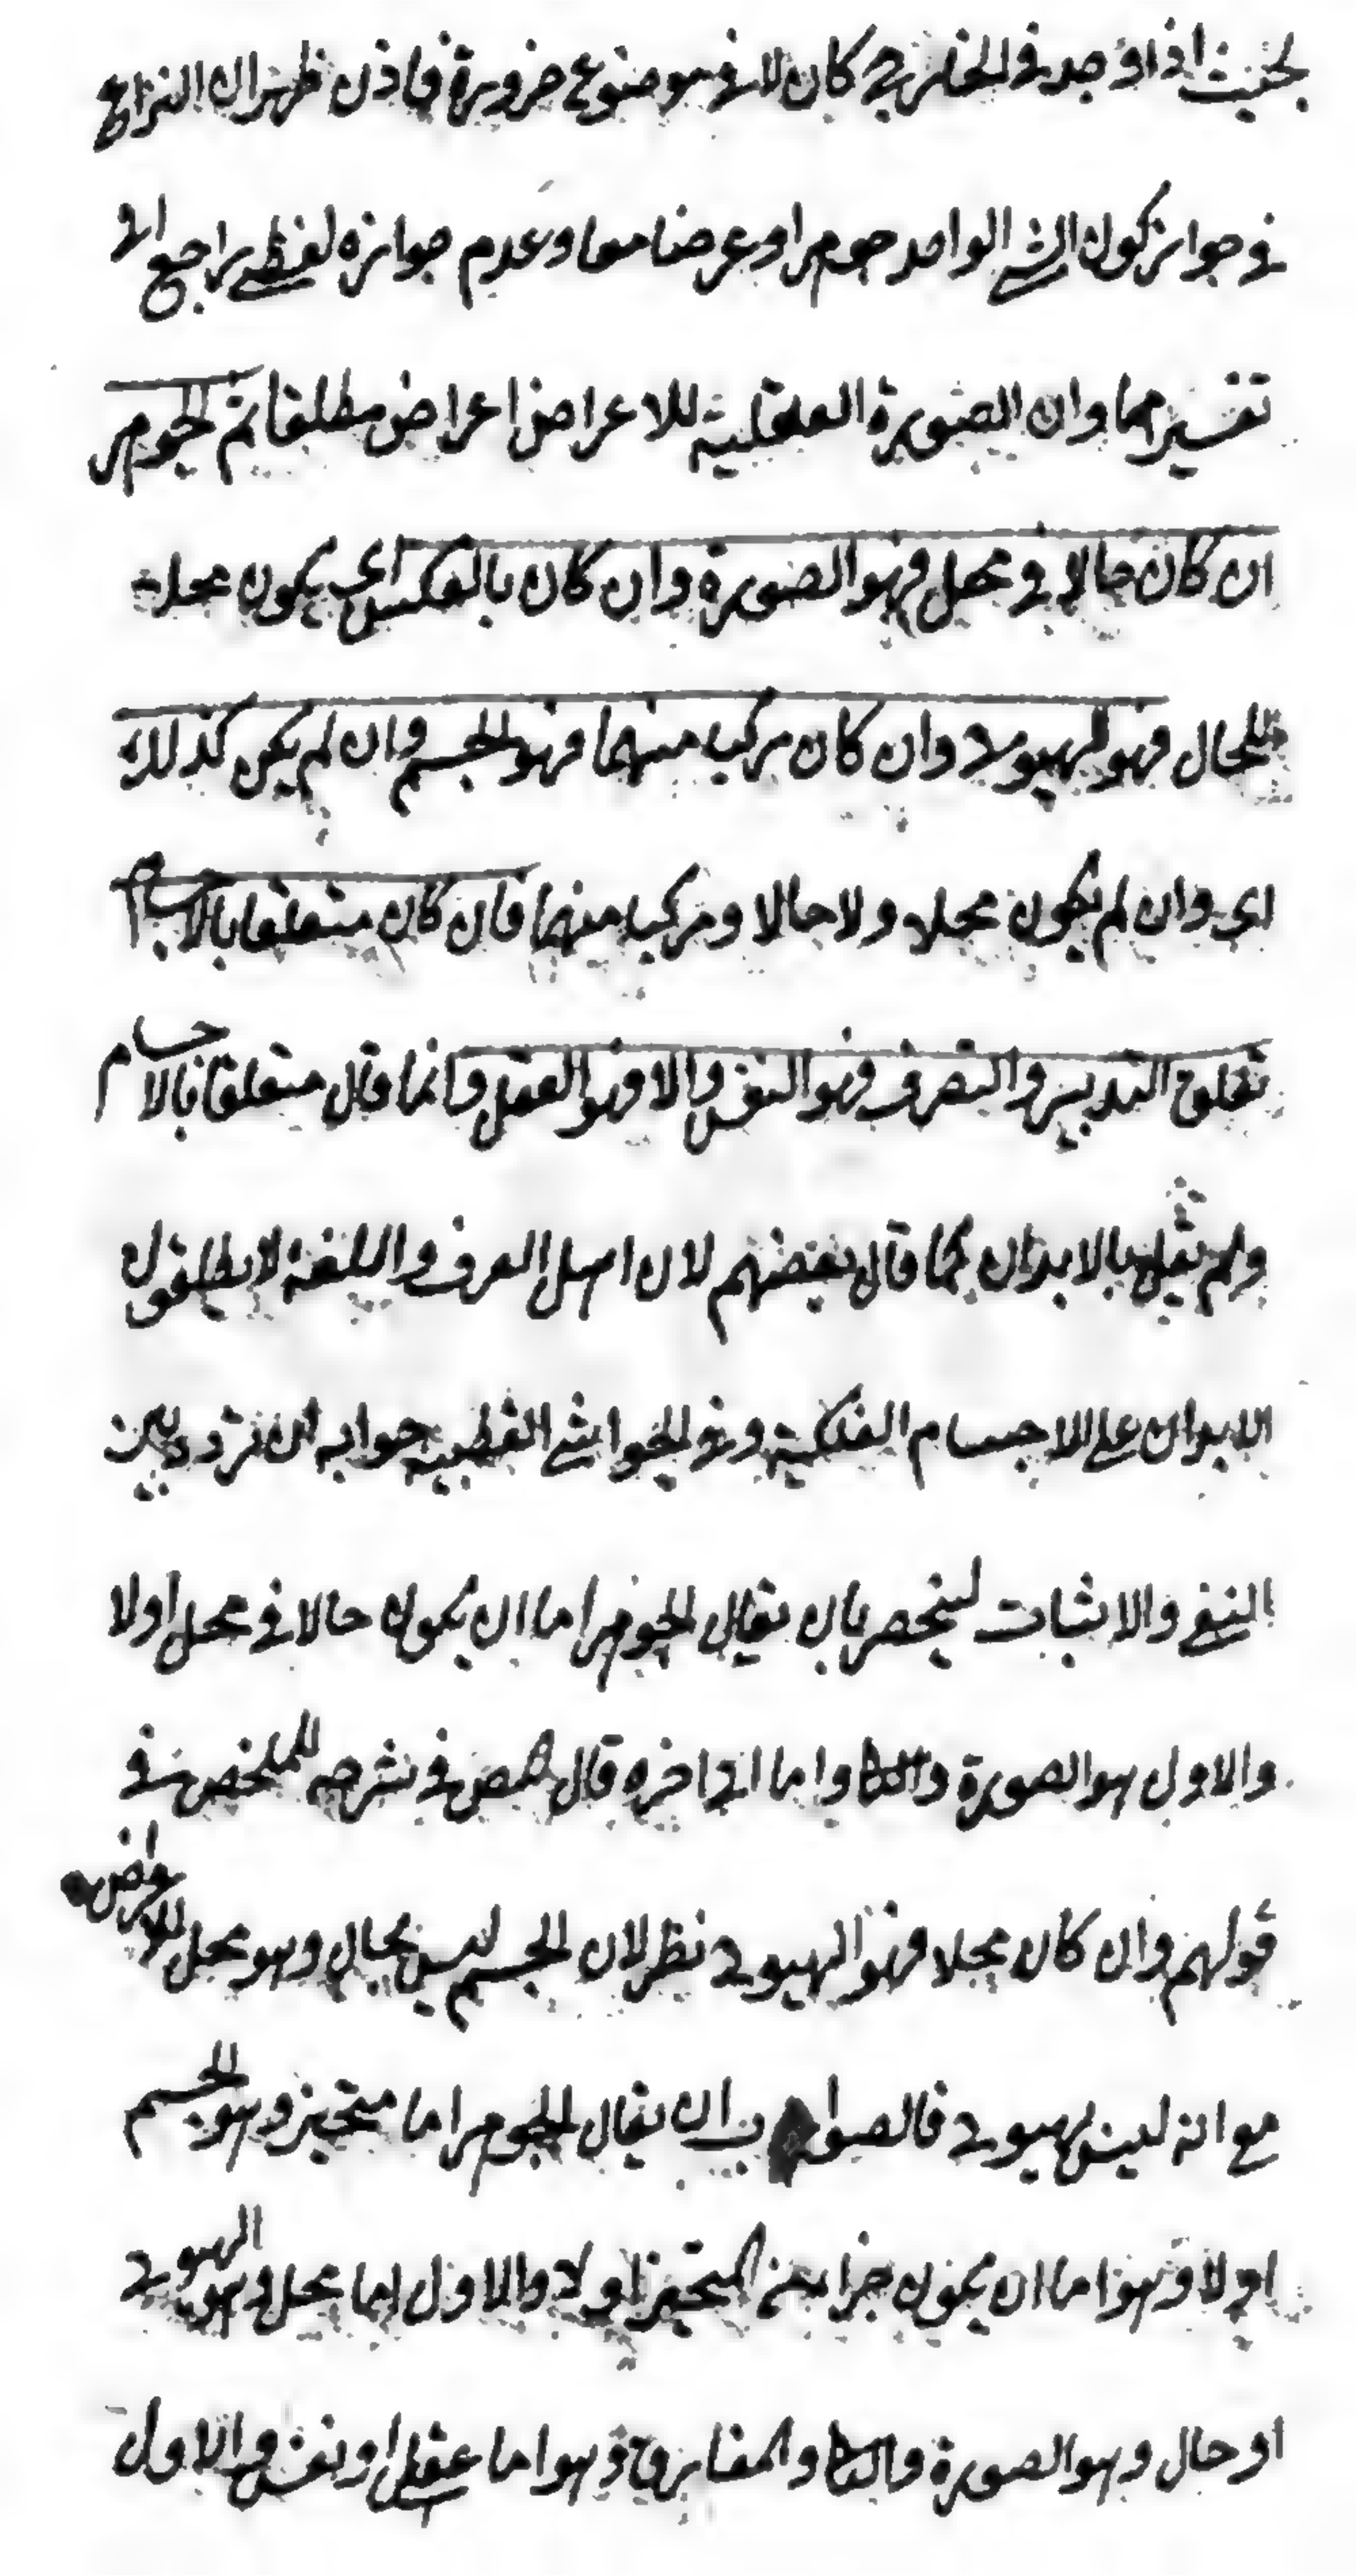 بحيث اذا وجد في الخارج كان لا في موضوع ضرورة فاذن ظهر ان النزاع
في جواز كون الشي الواحد جوهرا وعرضا معا وعدم جوازه لفظي راجع الى
تفسيرهما وان الصورة العقلية للاعراض اعراض مطلقا ثم الجوهر
ان كان حالا في محل فهو الصورة وان كان بالعكس اي يكون محلا
للحال فهو الهيولى وان كان مركبا منهما فهو الجسم وان لم يكن كذلك
اي وان لم يكون محلا ولا حالا ومركبا منهما فان كان متعلقا بالاجسام
تعلق التدبير والتصرف فهو النفس والا فهو العقل وانما قال متعلقا بالاجسام
ولم يقل بالابدان كما قال بعضهم لان اهل العرف واللغة لا يطلقون
الابدان على الاجسام الفلكية وفي الحواشي القطبية جوابه ان نردد بين
النفي والاثبات لينحصر بان يقال الجوهر اما ان يكون حالا في محل اولا
والاول هو الصورة والثا واما الى اخره قال المص في شرحه للملخص في
قولهم وان كان محلا فهو الهيولى نظر لان الجسم ليس بحال وهو محل للاعراض
مع انه ليس بهيولى فالصواب ان يقال الجوهر اما متحيز وهو الجسم
اولا وهو اما ان يكون جزا من المتحيز او لا والاول اما محل وهو الهيولى
او حال وهو الصورة والثا والمفارق وهو اما عقل او نفس والاول